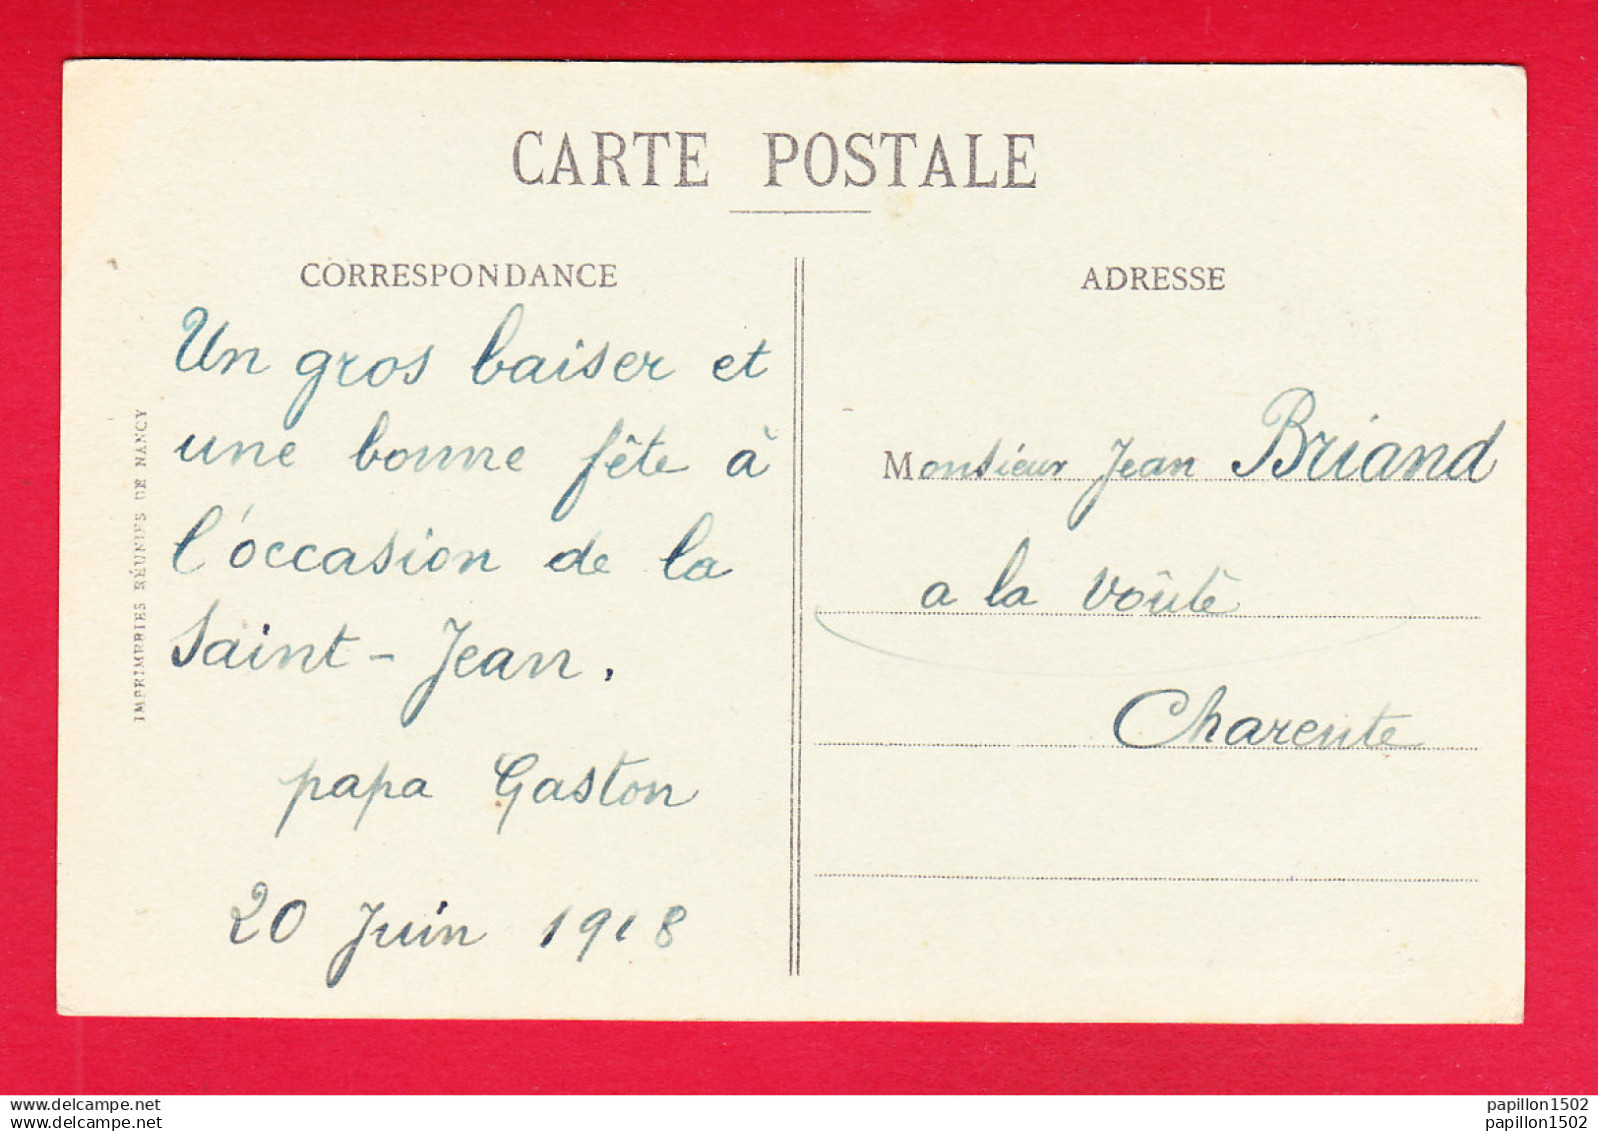 CARTE POSTALE
CORRESPONDANCE
Un gros baiser et
une bonne fête à
l'occasion de la
Saint-Jean.
papa Gaston
20 Juin 1918
IMPRIMERIES RÉUNIES DE NANCY
ADRESSE
Monsieur Jean Briand
a la Voûte
Charente
papillon1502
papillon1502
papillon1502
papillon1502